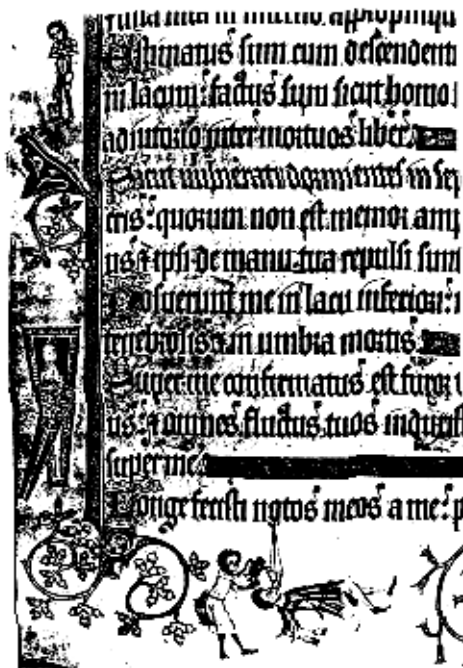 vita mea in inferno appropinqu
Estimatus sum cum descendenti
in lacum: factus sum sicut homo
adiutorio inter mortuos liber.
Sicut vulnerati dormientes in sep
cris: quorum non est memor amp
us & ipsi de manu tua repulsi sunt
Posuerunt me in lacu inferiori: i
tenebrosis & in umbra mortis.
Super me confirmatus est furor t
us: & omnes fluctus tuos induxist
super me.
Longe fecisti notos meos a me: p